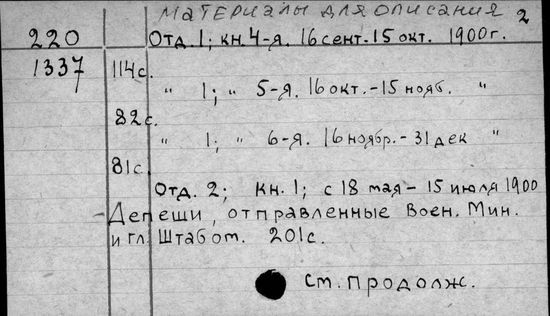 Материалы для описания 2
220 Отд. 1; кн. 4-я. 16 сент.-15 окт. 1900г.
1337 114с.
" 1; " 5-я. 16 окт.-15 нояб. "
82с.
" 1; " 6-я. 16 ноябр.-31 дек "
81с.
Отд. 2; кн. 1; с 18 мая - 15 июля 1900
- Депеши, отправленные Воен. Мин.
и гл. Штабом. 201с.
См. продолж.